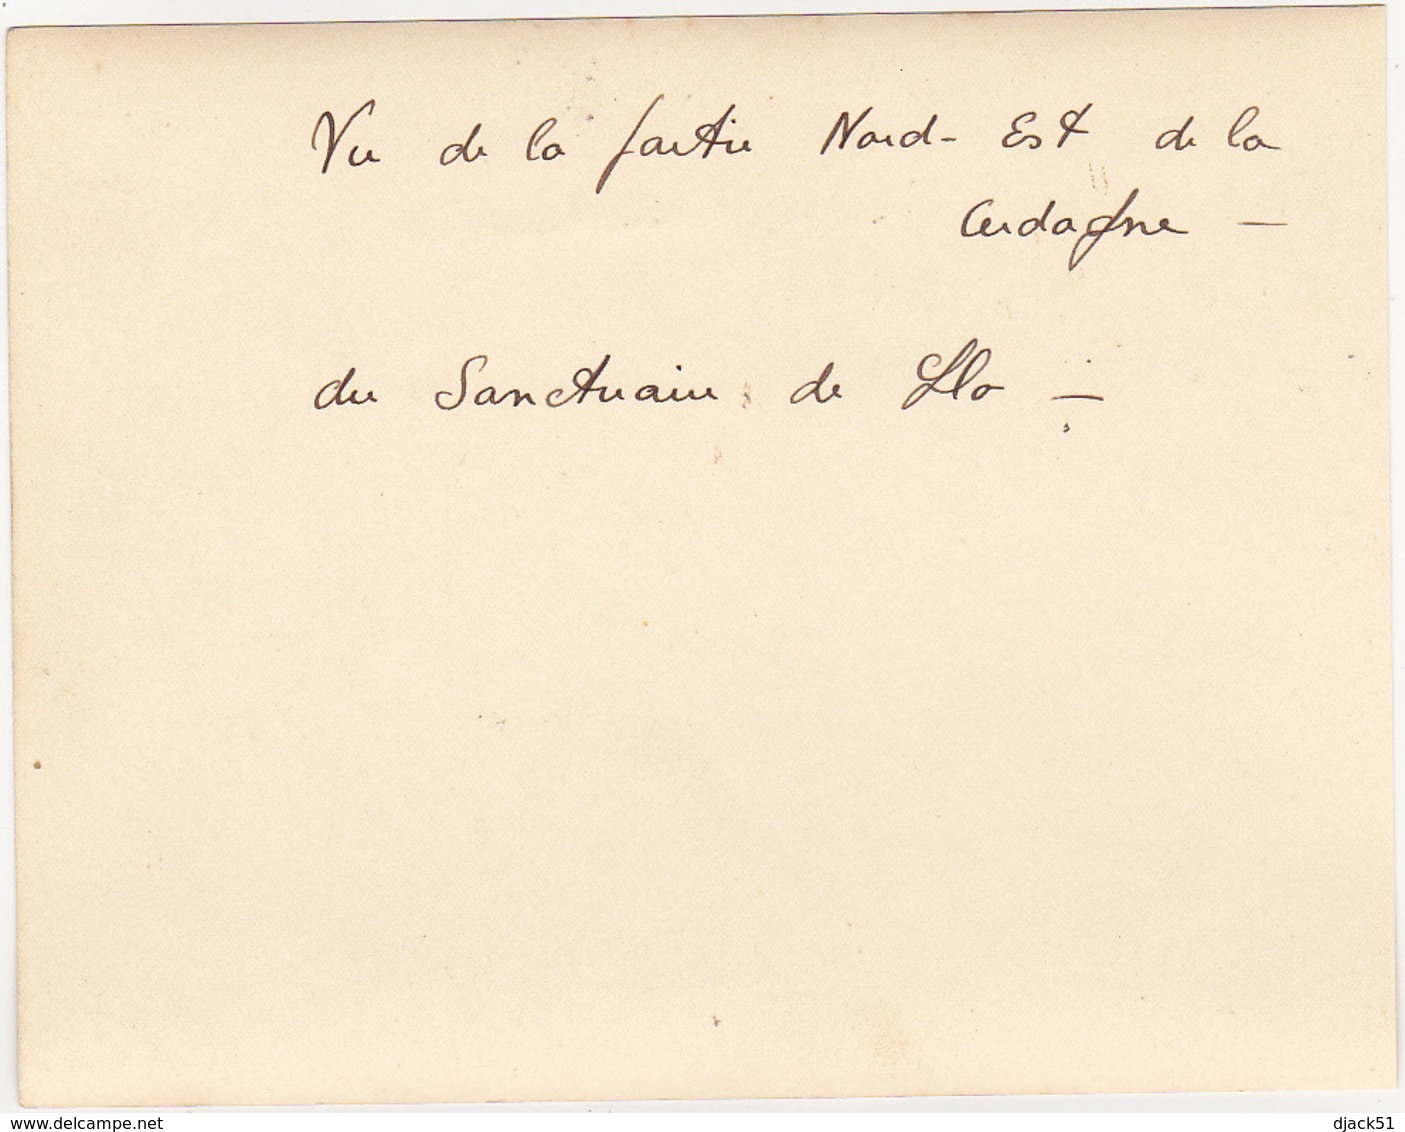 Vue de la partie Nord-Est de la
Cerdagne —
du Sanctuaire de Llo —
www.delcampe.net
djack51